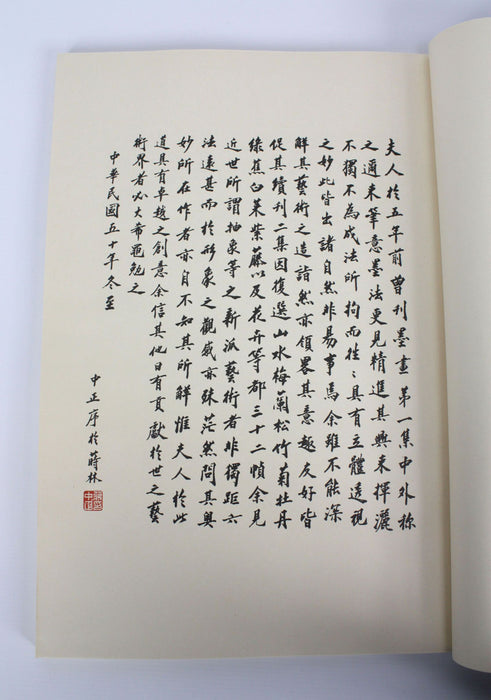 夫人於五年前曾刊墨畫第一集中外稱
之邇來筆意墨法更見精進其興來揮灑
不獨不為成法所拘而往〻具有立體透視
之妙此皆出諸自然非易事焉余雖不能深
解其藝術之造詣然亦領畧其意趣友好皆
促其續刊二集因復選山水梅蘭松竹菊牡丹
綠蕉白菜紫藤以及花卉等都三十二幀余見
近世所謂抽象等之新派藝術者非獨距六
法遠甚而於形象之觀感亦殊茫然問其奧
妙所在作者亦自不知其所解惟夫人於此
道具有卓越之創意余信其他日有貢獻於世之藝
術界者必大希黽勉之
中華民國五十年冬至
中正序於蔣林